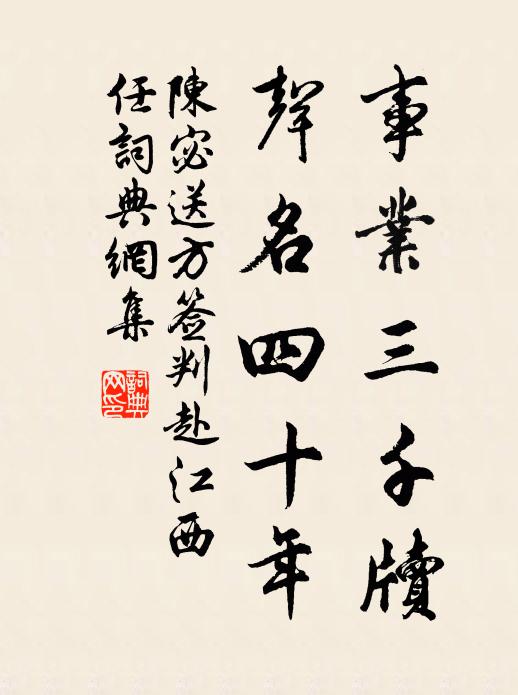 事業三千牘
聲名四十年
陳宓送方簽判赴江西
任詞典網集
詞典
网印